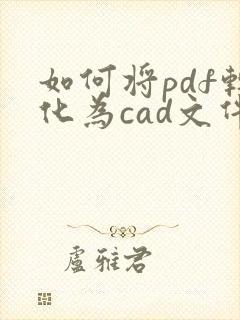 如何将pdf转
化为cad文件
卢雅君